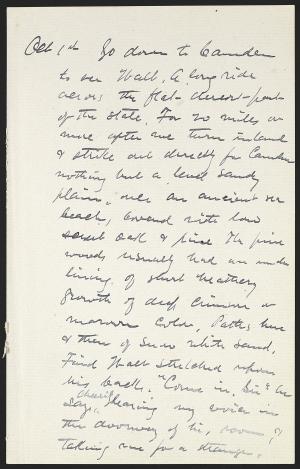 Oct 1st Go down to Camden
to see Walt, A long ride
across the flat desert-part
of the state. For 20 miles or
more after we turn inland
& strike out directly for Camden
nothing but a level sandy
plain, once an ancient sea
beach, covered with low
scrub oak & pine. The pine
woods usually had an under
lining of short heathery
growth of deep crimson or
maroon color, Paths here
& there of snow white sand,
Find Walt stretched upon
his back. "Come in, Sir" he
says, cheerily hearing my voice in
the doorway of his room, &
taking me for a stranger.